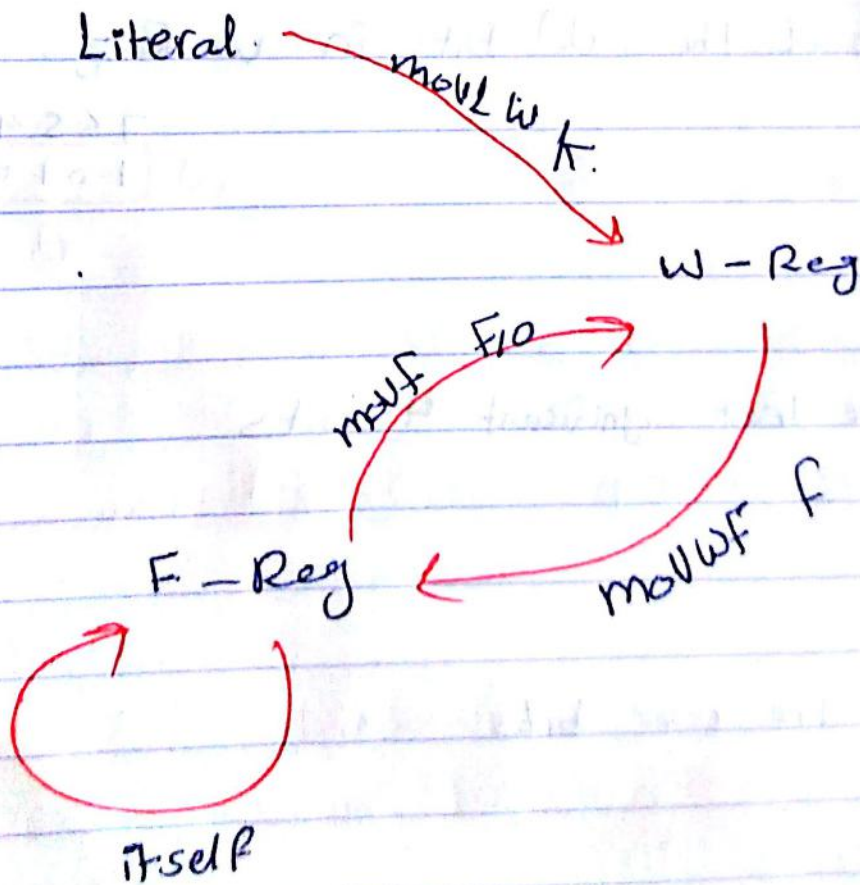 Literal.
movLw k.
W - Reg
movf F,0
movwf f
F - Reg
itself